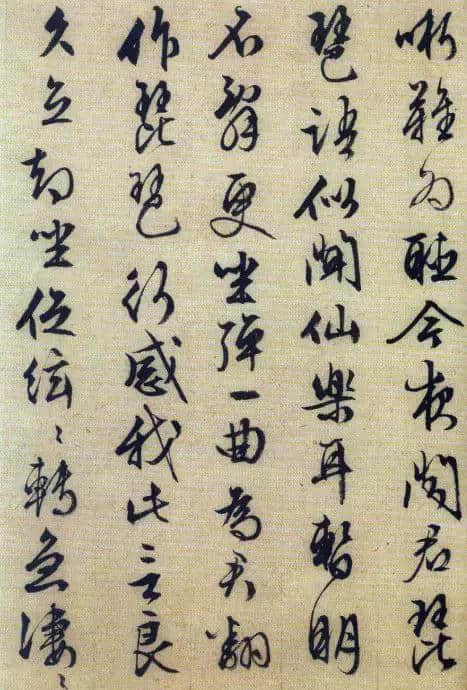 哳難為聽今夜聞君琵
琶語似聞仙樂耳暫明
名辭更坐彈一曲為君翻
作琵琶行感我此言良
久立却坐促絃〻轉急淒〻